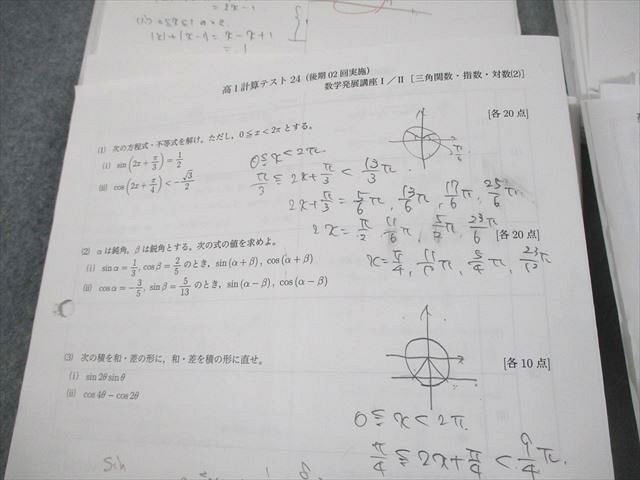 = 2x-1
|x|+|x-1| = x-x+1
= 1
高1計算テスト24 (後期02回実施)
数学発展講座Ⅰ/Ⅱ [三角関数・指数・対数(2)]
[各20点]
(1) 次の方程式・不等式を解け。ただし、0≦x<2πとする。
(i) sin(2x+π/3)=1/2
(ii) cos(2x+π/4)<-√3/2
0≦x<2π.
π/3≦2x+π/3<13/3π.
2x+π/3=5/6π, 13/6π, 17/6π, 25/6π.
2x=π/2, 11/6π, 5/2π, 23/6π
x=π/4, 11/12π, 5/4π, 23/12π
[各20点]
(2) αは鈍角, βは鋭角とする。次の式の値を求めよ。
(i) sinα=1/3, cosβ=2/5のとき, sin(α+β), cos(α+β)
(ii) cosα=-3/5, sinβ=5/13のとき, sin(α-β), cos(α-β)
[各10点]
(3) 次の積を和・差の形に, 和・差を積の形に直せ。
(i) sin2θsinθ
(ii) cos4θ-cos2θ
0≦x<2π.
π/4≦2x+π/4<9/4π.
sin